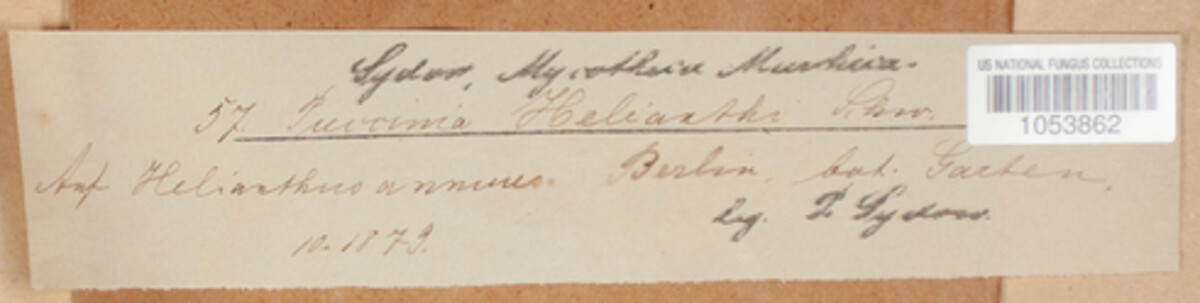 Sydow, Mycotheca Marchica.
US NATIONAL FUNGUS COLLECTIONS
1053862
57. Puccinia Helianthi Schw.
Auf Helianthus annuus. Berlin, bot. Garten,
leg. P. Sydow.
10. 1879.